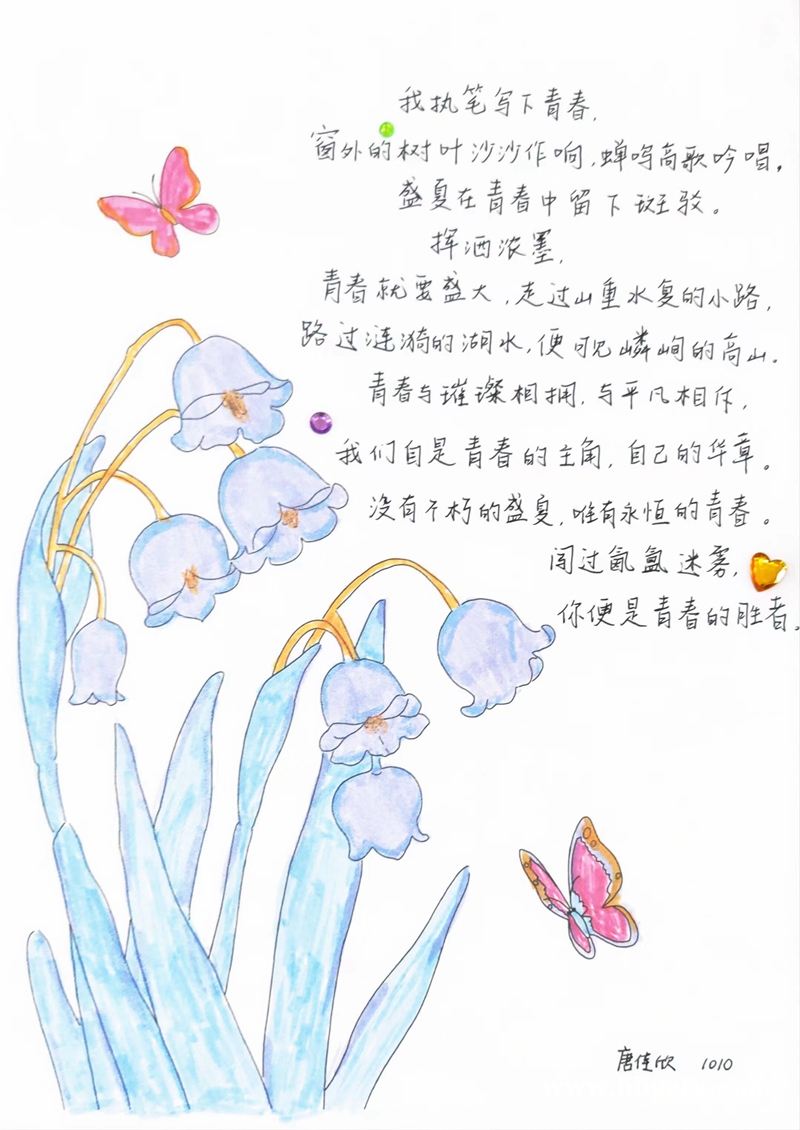 我执笔写下青春，
窗外的树叶沙沙作响，蝉鸣高歌吟唱。
盛夏在青春中留下斑驳。
挥洒浓墨，
青春就要盛大，走过山重水复的小路，
路过涟漪的湖水，便可见嶙峋的高山。
青春与璀璨相拥，与平凡相斥，
我们自是青春的主角，自己的华章。
没有不朽的盛夏，唯有永恒的青春。
闯过氤氲迷雾，
你便是青春的胜者。
唐佳欣 1010